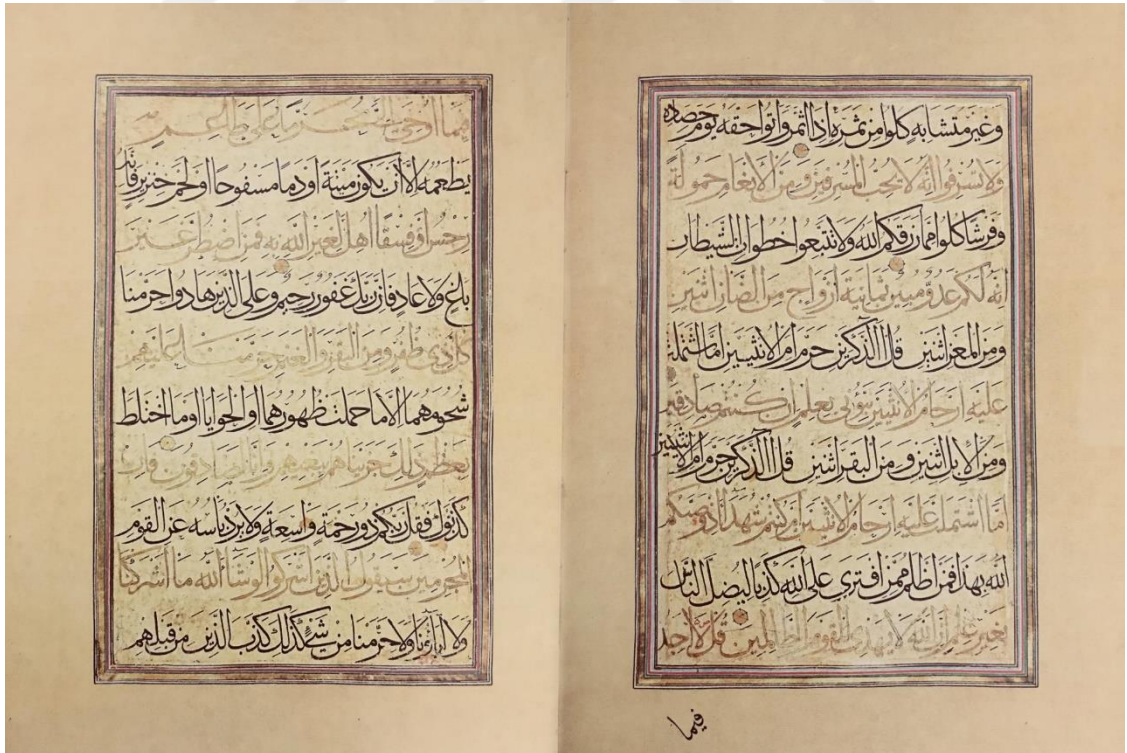 وغير متشابه كلوا من ثمره اذا اثمر واتوا حقه يوم حصاده
ولا تسرفوا انه لا يحب المسرفين ومن الانعام حمولة
وفرشا كلوا مما رزقكم الله ولا تتبعوا خطوات الشيطان
انه لكم عدو مبين ثمانية ازواج من الضان اثنين
ومن المعز اثنين قل االذكرين حرم ام الانثيين اما اشتملت
عليه ارحام الانثيين نبوني بعلم ان كنتم صادقين
ومن الابل اثنين ومن البقر اثنين قل االذكرين حرم ام الانثيين
اما اشتملت عليه ارحام الانثيين ام كنتم شهدا اذ وصيكم
الله بهذا فمن اظلم ممن افتري على الله كذبا ليضل الناس
بغير علم ان الله لا يهدي القوم الظالمين قل لا اجد
فيما
فيما اوحي الي محرما على طاعم
يطعمه الا ان يكون ميتة او دما مسفوحا او لحم خنزير فانه
رجس او فسقا اهل لغير الله به فمن اضطر غير
باغ ولا عاد فان ربك غفور رحيم وعلى الذين هادوا حرمنا
كل ذي ظفر ومن البقر والغنم حرمنا عليهم
شحومهما الا ما حملت ظهورهما او الحوايا او ما اختلط
بعظم ذلك جزيناهم ببغيهم وانا لصادقون فان
كذبوك فقل ربكم ذو رحمة واسعة ولا يرد باسه عن القوم
المجرمين سيقول الذين اشركوا لو شا الله ما اشركنا
ولا اباؤنا ولا حرمنا من شئ كذلك كذب الذين من قبلهم